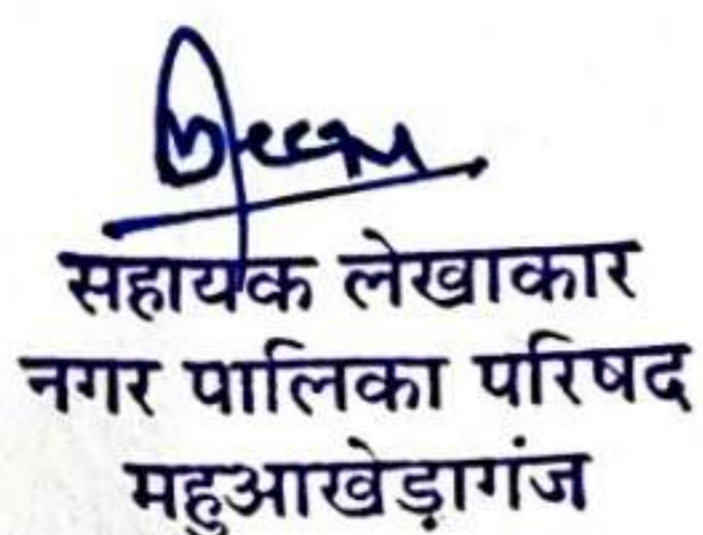 सहायक लेखाकार
नगर पालिका परिषद
महुआखेड़ागंज